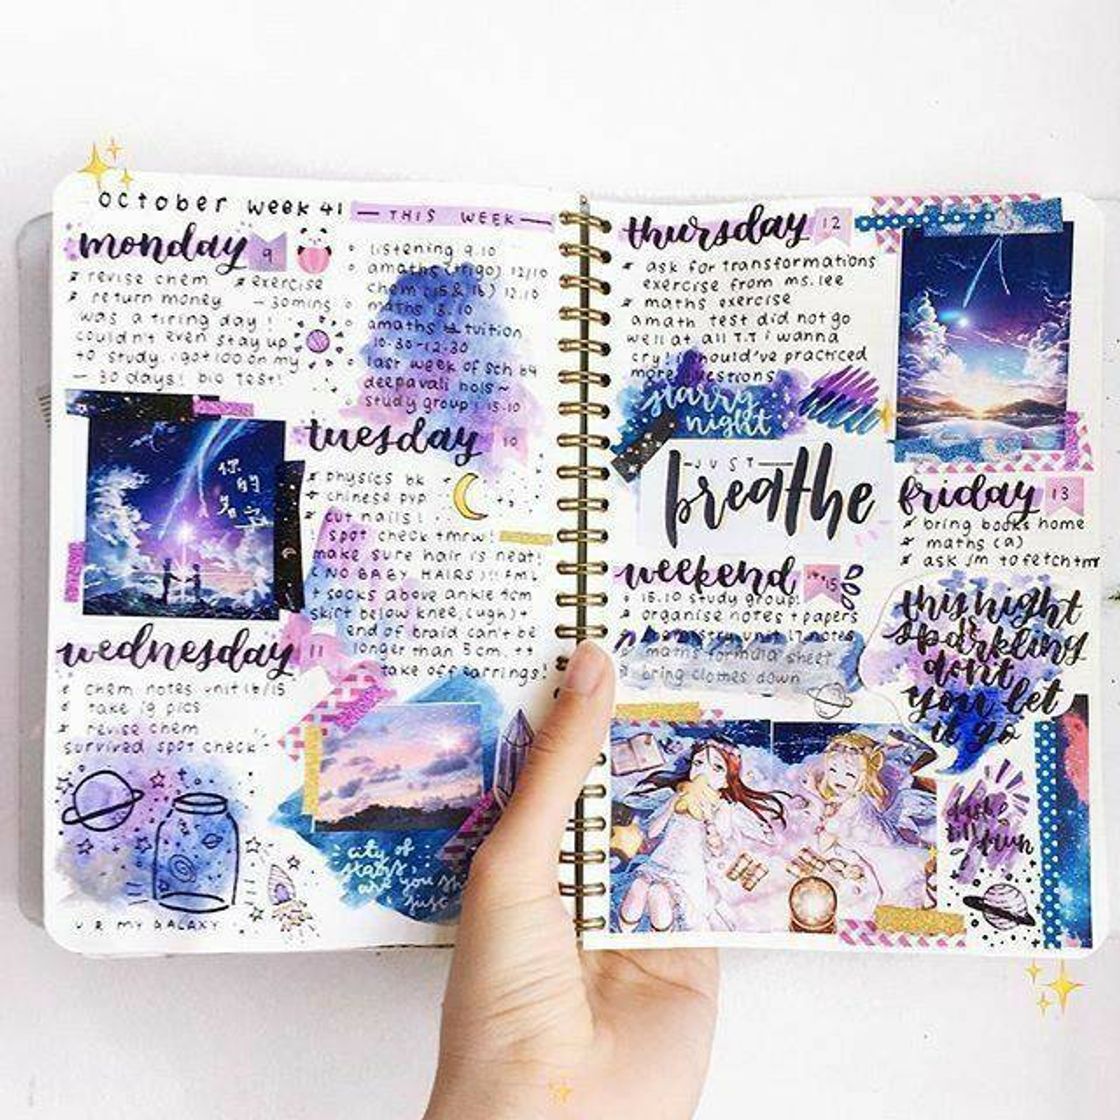 october week 41
monday 9
revise chem
return money
was a tiring day!
couldn't even stay up
to study. i got 100 on my
— 30 days! bio test!
exercise
— 30mins
THIS WEEK
listening 9.10
amaths (trigo) 12/10
chem (15 & 16) 12.10
maths 13.10
amaths tuition
10.30-12.30
last week of sch b4
deepavali hols ~
study group! 15.10
你的名
tuesday 10
physics bk
chinese pvp
cut nails!
! spot check tmrw!
make sure hair is neat!
(NO BABY HAIRS)!! fml
+ socks above ankle 4cm
skirt below knee (ugh)+
end of braid can't be
longer than 5cm. ++
take off earrings!
wednesday 11
chem notes unit 16/15
take ig pics
revise chem
survived spot check~
U R MY GALAXY
city of
stars,
are you
just
thursday 12
ask for transformations
exercise from ms. lee
maths exercise
amath test did not go
well at all T.T i wanna
cry! i should've practiced
more questions
starry
night
JUST
breathe
friday 13
bring books home
maths (a)
ask jm to fetch tmr
weekend 14-15
15.10 study group!
organise notes + papers
chemistry unit 17 notes
maths formula sheet
bring clothes down
this night
sparkling
don't
you let
it go
dusk
till dawn